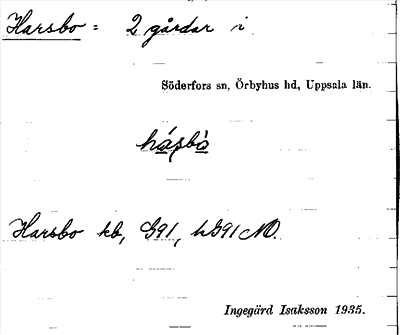 Harsbo = 2 gårdar i
Söderfors sn, Örbyhus hd, Uppsala län.
Harsbo kb, G91, hG91 NO.
Ingegärd Isaksson 1935.